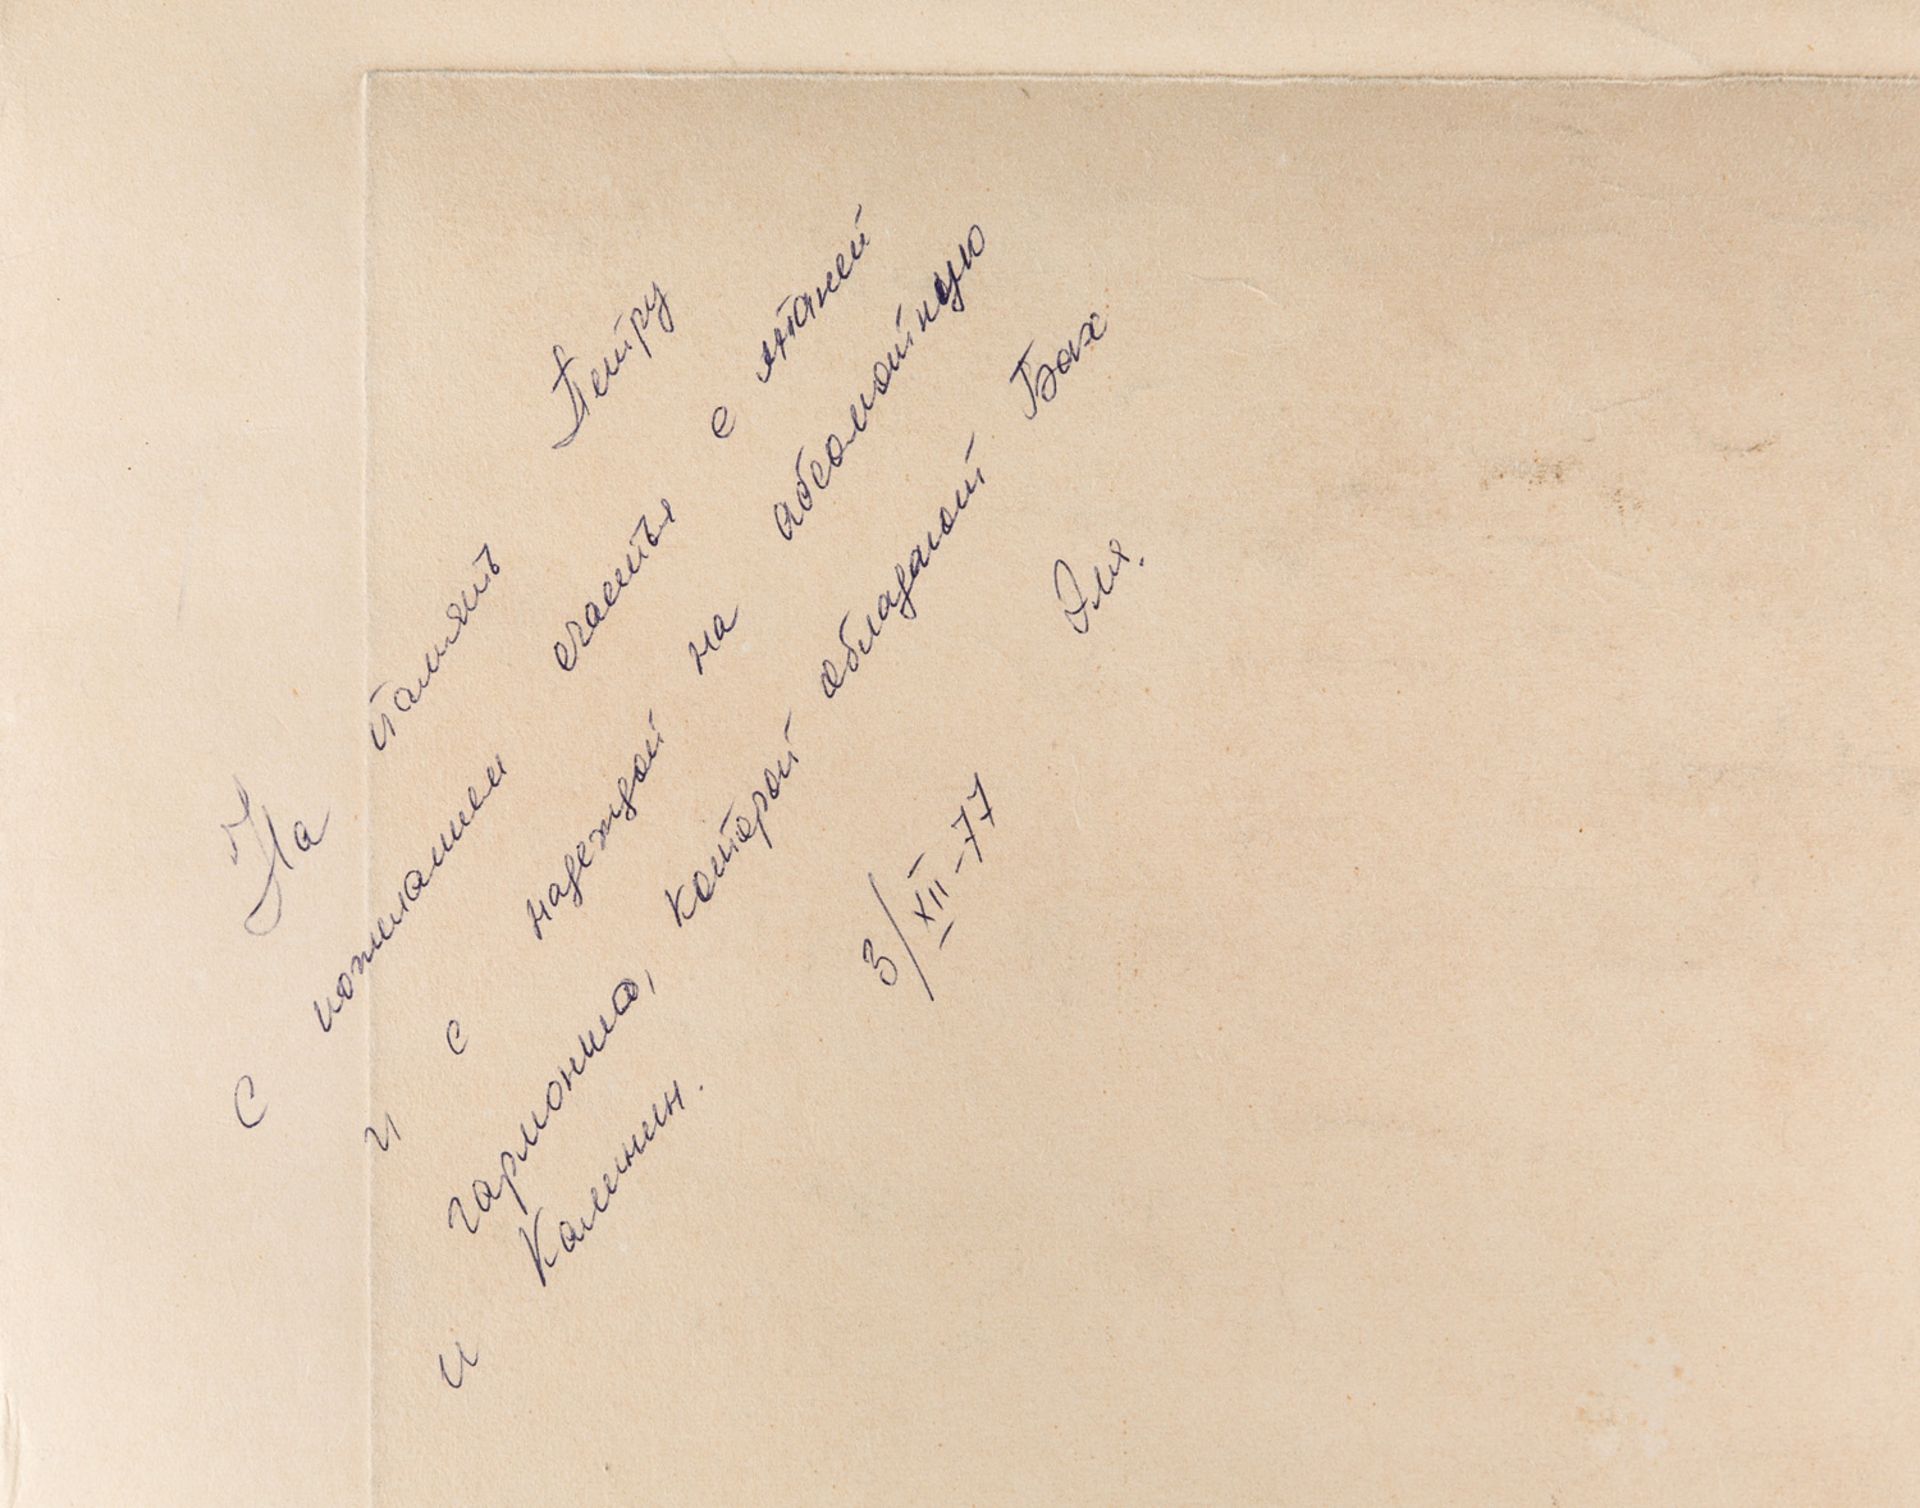 На память Петру
С пожеланием счастья с
и с надеждой на абсолютную
гармонию, которой обладают Бах
и Калинин.
3/XII-77 Эля.